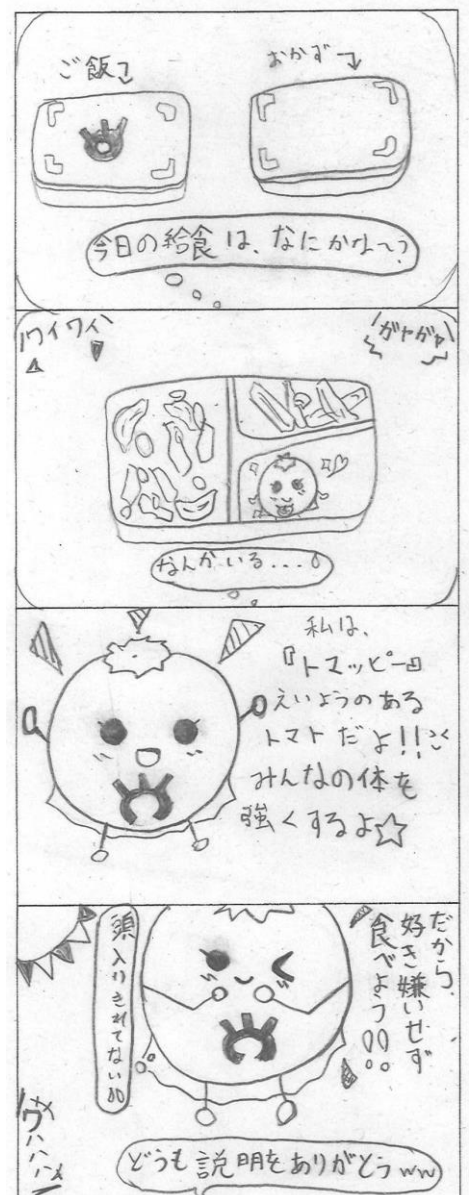 ご飯
おかず
今日の給食は、なにかな～?
ワイワイ
ガヤガヤ
なんかいる...
私は、
『トマッピー』
えいようのある
トマトだよ!!
みんなの体を
強くするよ☆
だから、
好き嫌いせず
食べよう!!
頭入りきれてない!!
ワハハハ
どうも説明をありがとうww